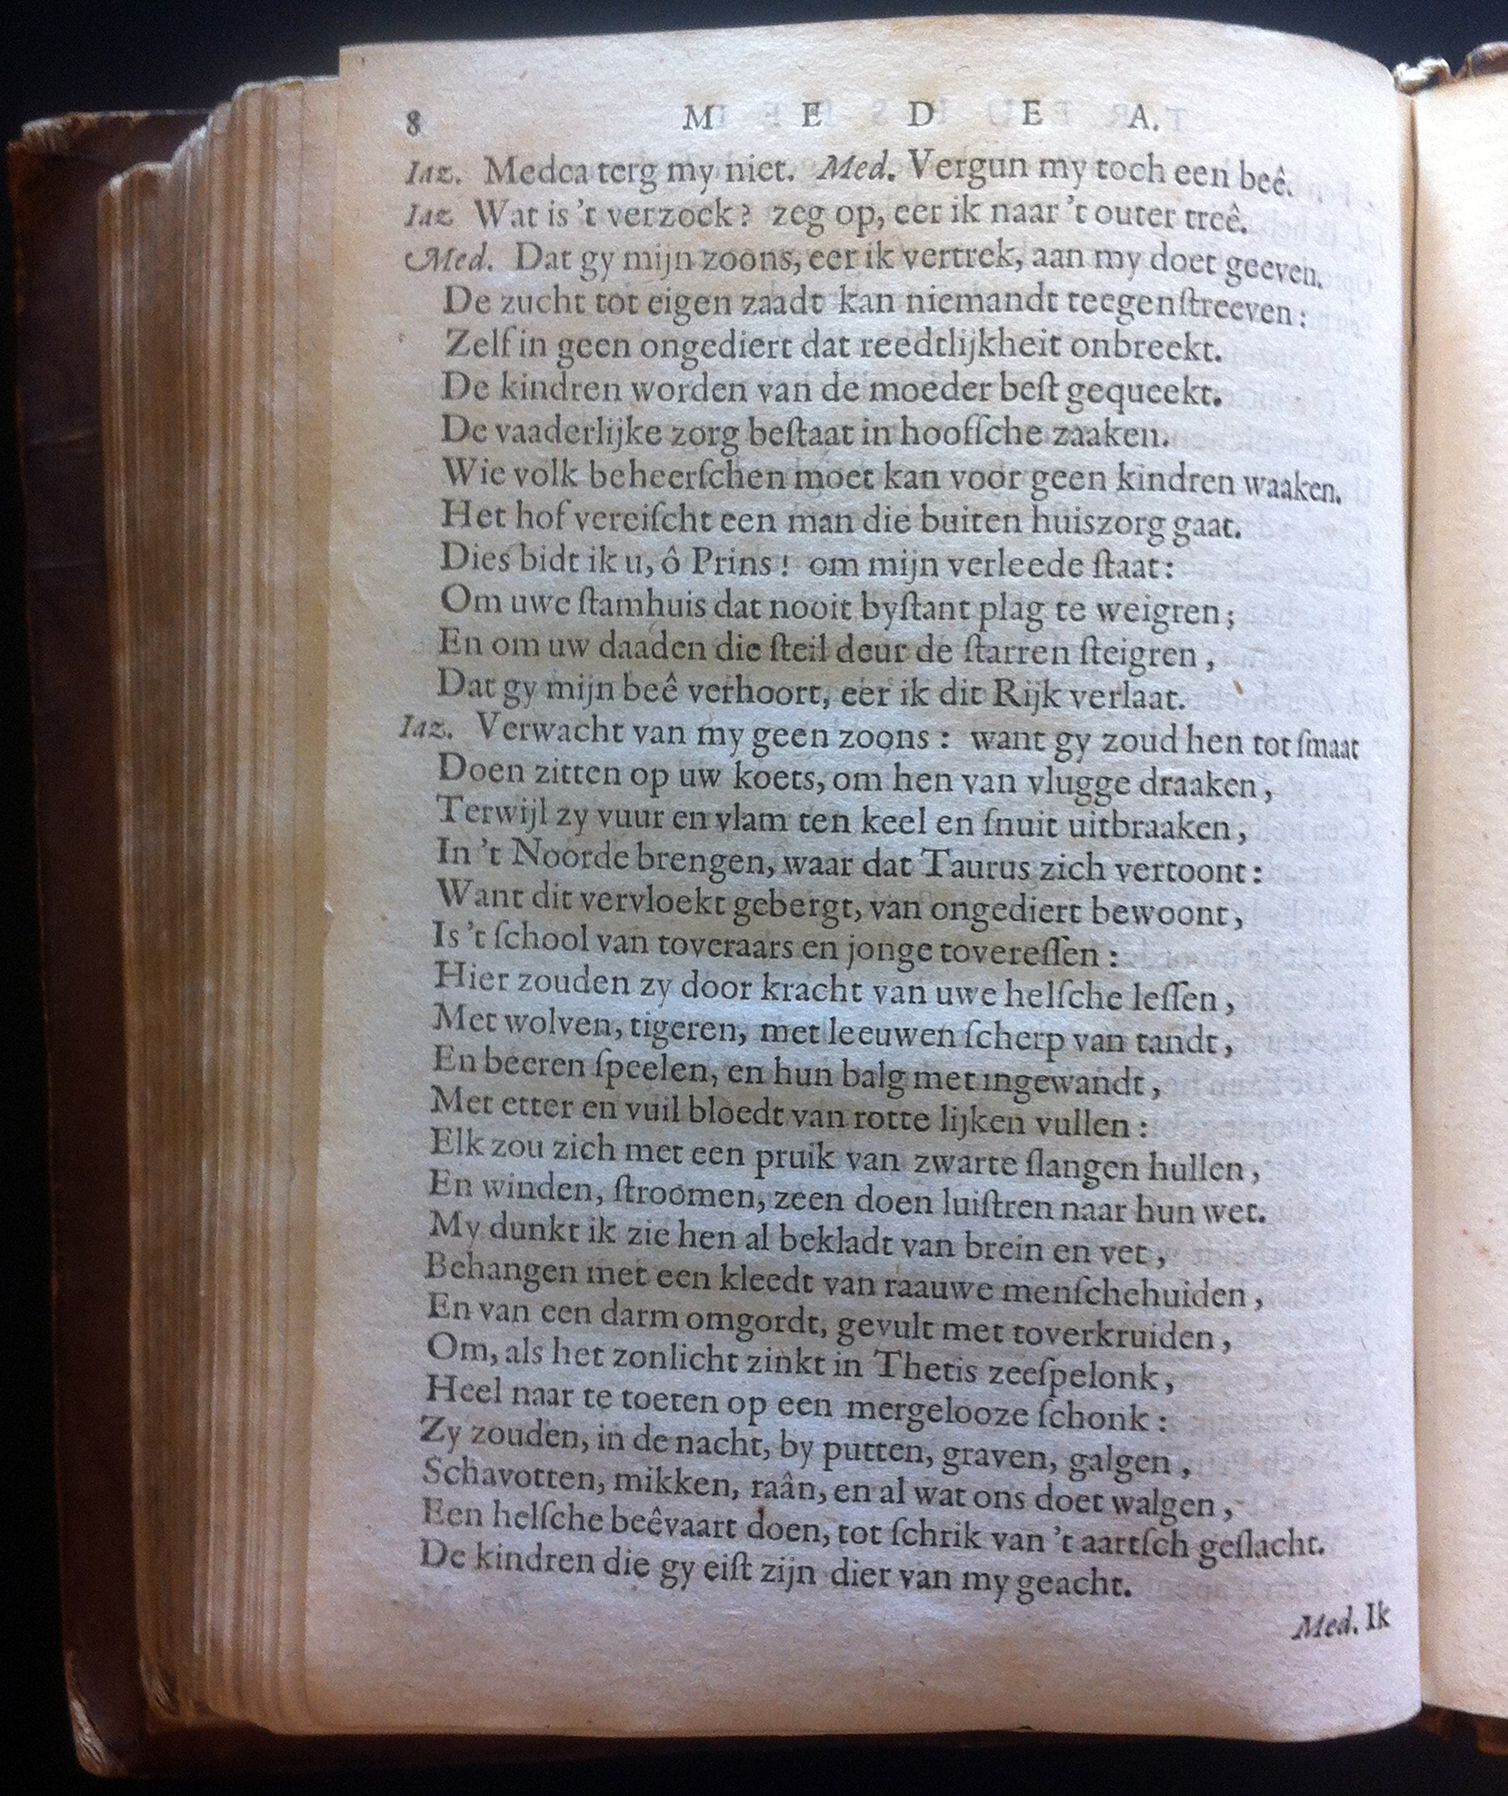 8 M E D E A.
Iaz. Medea terg my niet. Med. Vergun my toch een beê.
Iaz Wat is 't verzoek? zeg op, eer ik naar 't outer treê.
Med. Dat gy mijn zoons, eer ik vertrek, aan my doet geeven.
De zucht tot eigen zaadt kan niemandt teegenſtreeven:
Zelf in geen ongediert dat reedtlijkheit onbreekt.
De kindren worden van de moeder beſt gequeekt.
De vaaderlijke zorg beſtaat in hoofſche zaaken.
Wie volk beheerſchen moet kan voor geen kindren waaken.
Het hof vereiſcht een man die buiten huiszorg gaat.
Dies bidt ik u, ô Prins! om mijn verleede ſtaat:
Om uwe ſtamhuis dat nooit byſtant plag te weigren;
En om uw daaden die ſteil deur de ſtarren ſteigren,
Dat gy mijn beê verhoort, eer ik dit Rijk verlaat.
Iaz. Verwacht van my geen zoons: want gy zoud hen tot ſmaat
Doen zitten op uw koets, om hen van vlugge draaken,
Terwijl zy vuur en vlam ten keel en ſnuit uitbraaken,
In 't Noorde brengen, waar dat Taurus zich vertoont:
Want dit vervloekt gebergt, van ongediert bewoont,
Is 't ſchool van toveraars en jonge tovereſſen:
Hier zouden zy door kracht van uwe helſche leſſen,
Met wolven, tigeren, met leeuwen ſcherp van tandt,
En beeren ſpeelen, en hun balg met ingewandt,
Met etter en vuil bloedt van rotte lijken vullen:
Elk zou zich met een pruik van zwarte ſlangen hullen,
En winden, ſtroomen, zeen doen luiſtren naar hun wet.
My dunkt ik zie hen al bekladt van brein en vet,
Behangen met een kleedt van raauwe menſchehuiden,
En van een darm omgordt, gevult met toverkruiden,
Om, als het zonlicht zinkt in Thetis zeeſpelonk,
Heel naar te toeten op een mergelooze ſchonk:
Zy zouden, in de nacht, by putten, graven, galgen,
Schavotten, mikken, raân, en al wat ons doet walgen,
Een helſche beêvaart doen, tot ſchrik van 't aartſch geſlacht.
De kindren die gy eiſt zijn dier van my geacht.
Med. Ik